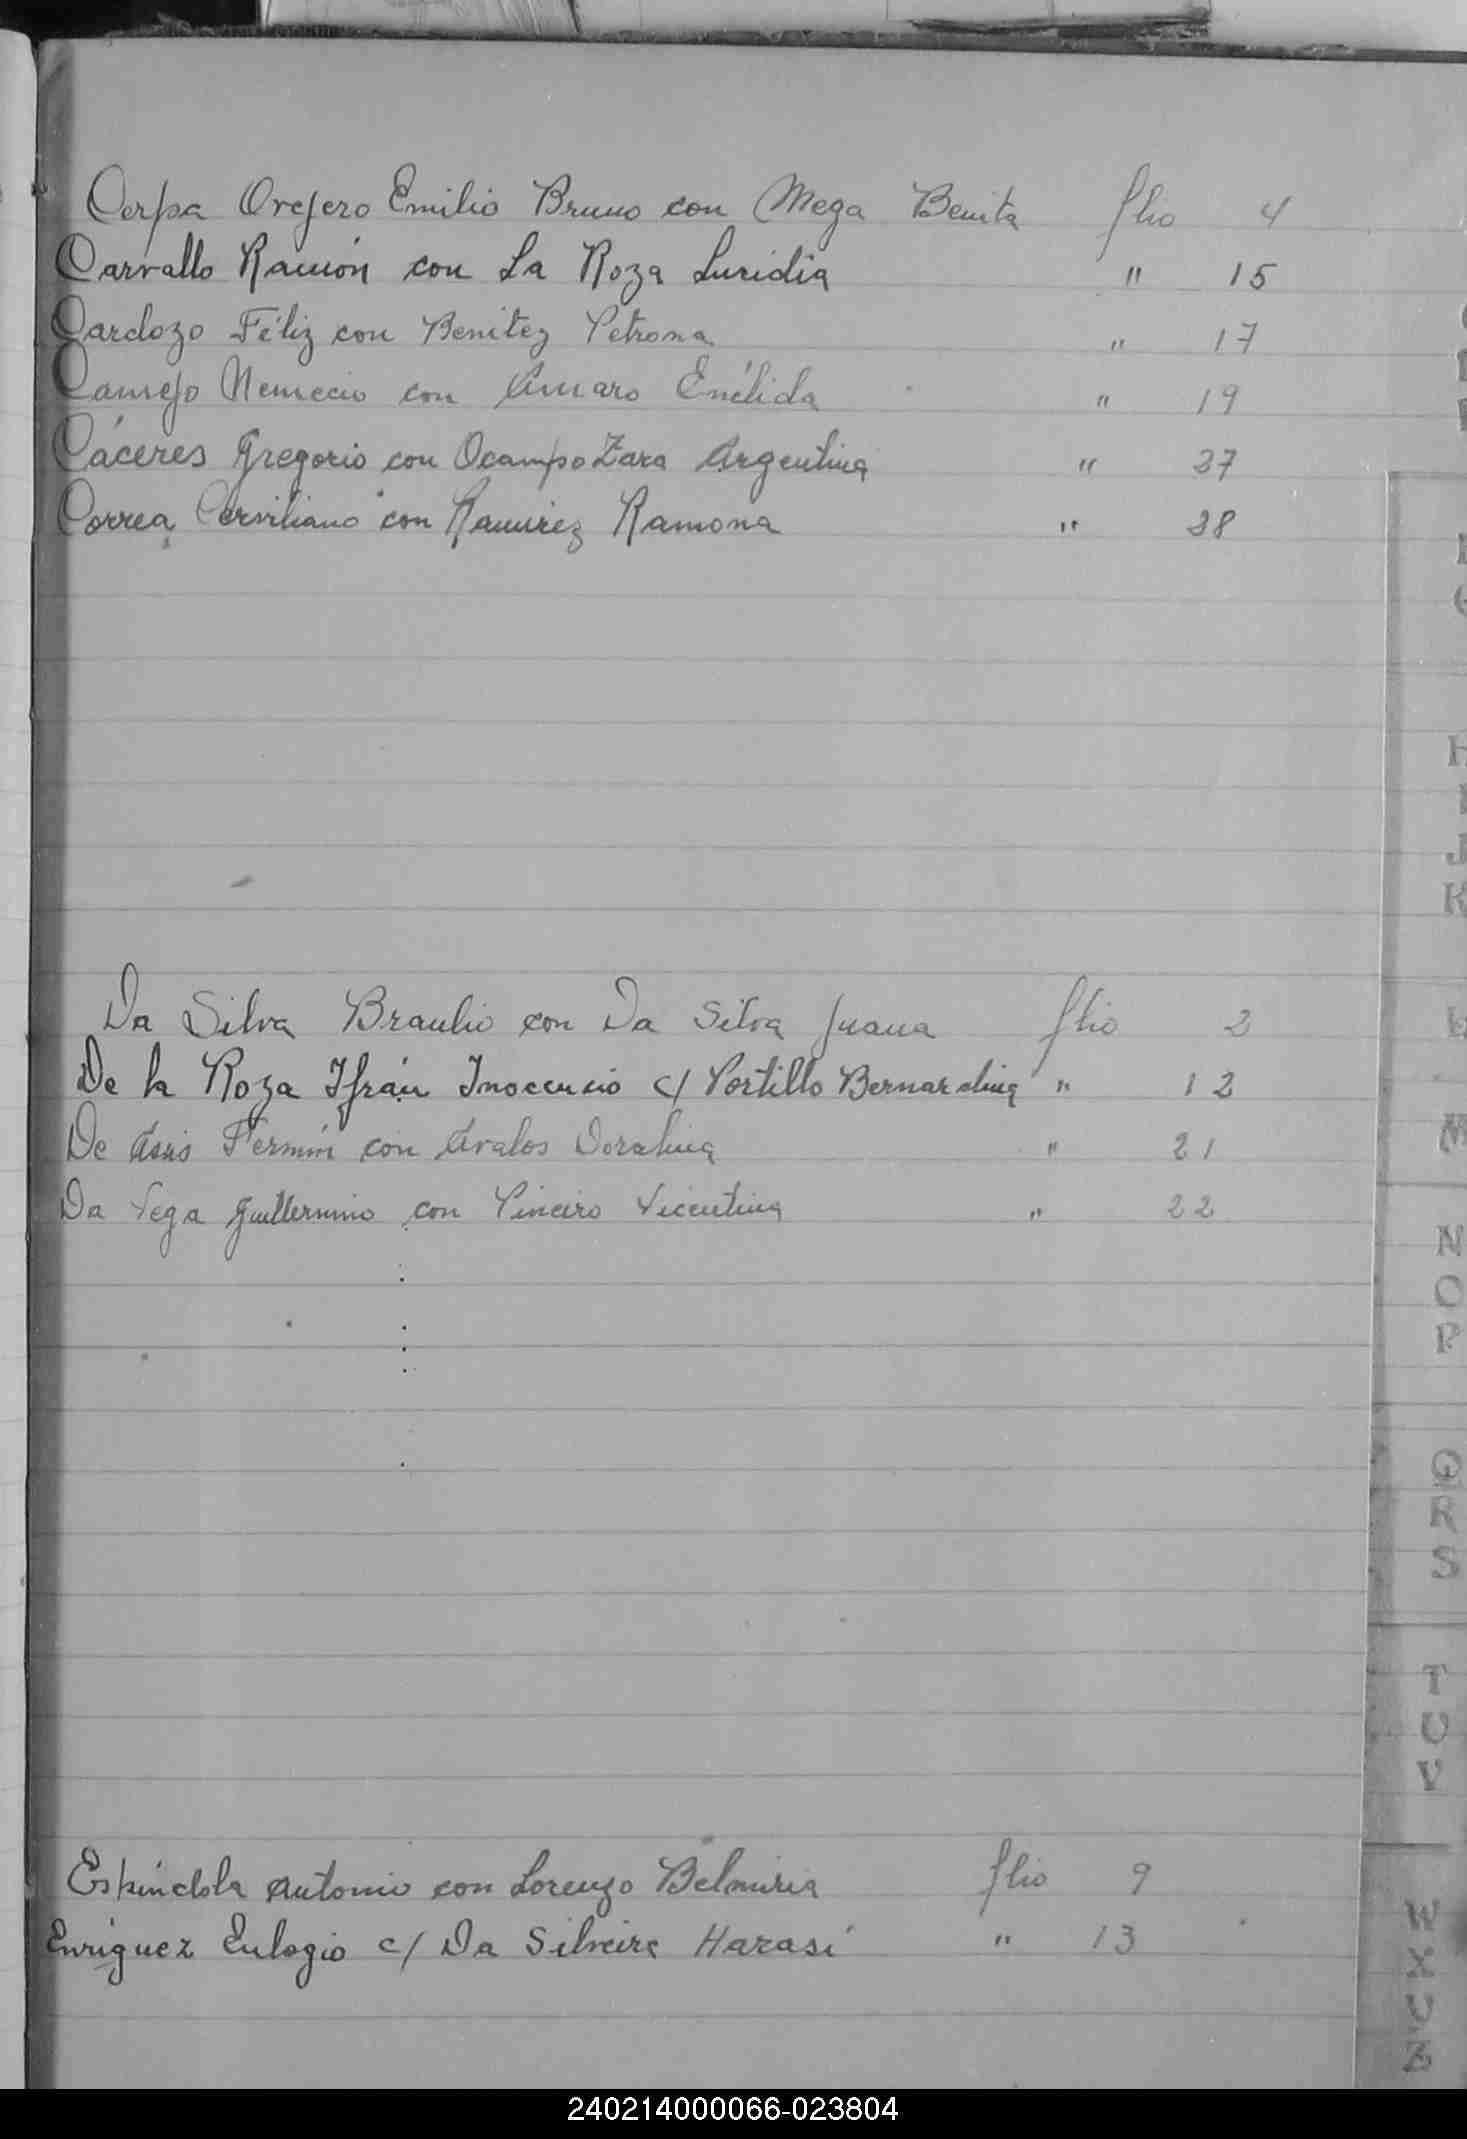 Cerpa Orejero Emilio Bruno con Mega Benita flio 4
Carvallo Ramón con La Roza Luridia " 15
Cardozo Féliz con Benitez Petrona " 17
Camejo Nemecio con Amaro Enélida " 19
Cáceres Gregorio con Ocampo Zara Argentina " 37
Correa Cerviliano con Ramirez Ramona " 38
Da Silva Braulio con Da Silva Juana flio 2
De la Roza Ifrán Inocencio c/ Portillo Bernardina " 12
De Asis Fermin con Avalos Doralina " 21
Da Vega Guillermino con Pineiro Vicentina " 22
Espíndola Antonio con Lorenzo Belmiria flio 9
Enriquez Eulogio c/ Da Silveira Harasi " 13
H
J
K
M
N
O
P
Q
R
S
T
U
V
W
X
Z
240214000066-023804